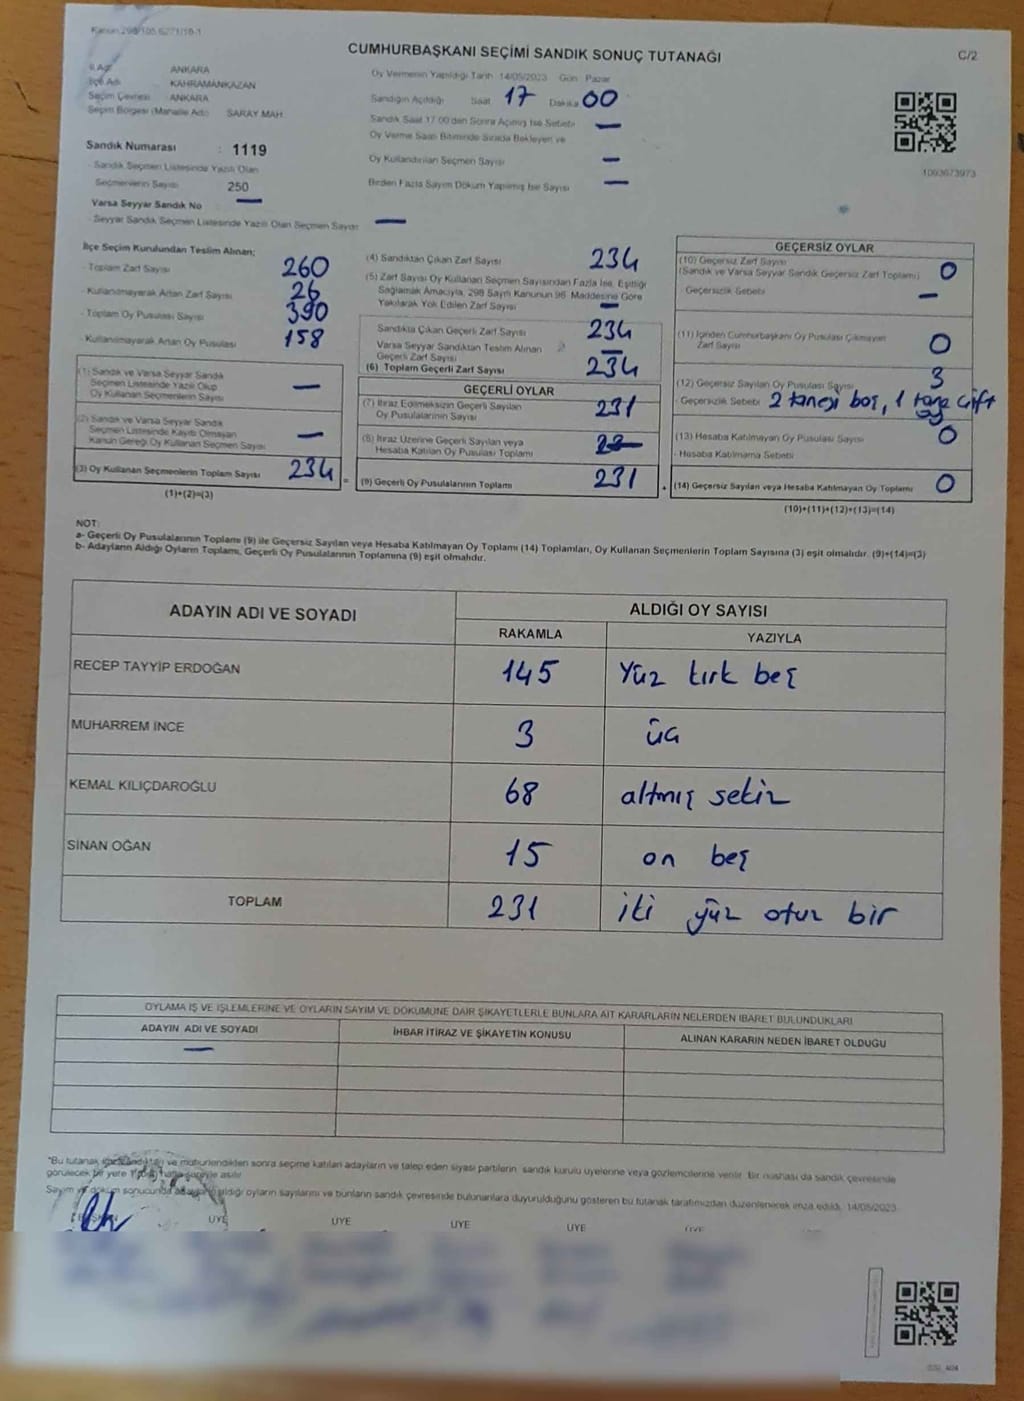 Kanun 298/105,6271/18-1
CUMHURBAŞKANI SEÇİMİ SANDIK SONUÇ TUTANAĞI
C/2
İl Adı ANKARA
İlçe Adı KAHRAMANKAZAN
Seçim Çevresi ANKARA
Seçim Bölgesi (Mahalle Adı) SARAY MAH.
Sandık Numarası : 1119
Sandık Seçmen Listesinde Yazılı Olan
Seçmenlerin Sayısı 250
Varsa Seyyar Sandık No —
- Seyyar Sandık Seçmen Listesinde Yazılı Olan Seçmen Sayısı —
Oy Vermenin Yapıldığı Tarih 14/05/2023 Gün Pazar
Sandığın Açıldığı Saat 17 Dakika 00
Sandık Saat 17:00'den Sonra Açılmış İse Sebebi —
Oy Verme Saati Bitiminde Sırada Bekleyen ve
Oy Kullandırılan Seçmen Sayısı —
Birden Fazla Sayım Döküm Yapılmış İse Sayısı —
1093673973
İlçe Seçim Kurulundan Teslim Alınan;
- Toplam Zarf Sayısı 260
- Kullanılmayarak Artan Zarf Sayısı 26
- Toplam Oy Pusulası Sayısı 390
- Kullanılmayarak Artan Oy Pusulası 158
(1) Sandık ve Varsa Seyyar Sandık
Seçmen Listesinde Yazılı Olup
Oy Kullanan Seçmenlerin Sayısı —
(2) Sandık ve Varsa Seyyar Sandık
Seçmen Listesinde Kayıtlı Olmayan
Kanun Gereği Oy Kullanan Seçmen Sayısı —
(3) Oy Kullanan Seçmenlerin Toplam Sayısı 234 =
(1)+(2)=(3)
(4) Sandıktan Çıkan Zarf Sayısı 234
(5) Zarf Sayısı Oy Kullanan Seçmen Sayısından Fazla İse, Eşitliği
Sağlamak Amacıyla, 298 Sayılı Kanunun 98. Maddesine Göre
Yakılarak Yok Edilen Zarf Sayısı —
Sandıkta Çıkan Geçerli Zarf Sayısı 234
Varsa Seyyar Sandıktan Teslim Alınan
Geçerli Zarf Sayısı —
(6) Toplam Geçerli Zarf Sayısı 234
GEÇERLİ OYLAR
(7) İtiraz Edilmeksizin Geçerli Sayılan
Oy Pusulalarının Sayısı 231
(8) İtiraz Üzerine Geçerli Sayılan veya
Hesaba Katılan Oy Pusulası Toplamı
(9) Geçerli Oy Pusulalarının Toplamı 231 +
GEÇERSİZ OYLAR
(10) Geçersiz Zarf Sayısı
(Sandık ve Varsa Seyyar Sandık Geçersiz Zarf Toplamı) 0
- Geçersizlik Sebebi —
(11) İçinden Cumhurbaşkanı Oy Pusulası Çıkmayan
Zarf Sayısı 0
(12) Geçersiz Sayılan Oy Pusulası Sayısı 3
- Geçersizlik Sebebi 2 tanesi boş, 1 tane çift
oy
(13) Hesaba Katılmayan Oy Pusulası Sayısı 0
- Hesaba Katılmama Sebebi
(14) Geçersiz Sayılan veya Hesaba Katılmayan Oy Toplamı 0
(10)+(11)+(12)+(13)=(14)
NOT:
a- Geçerli Oy Pusulalarının Toplamı (9) ile Geçersiz Sayılan veya Hesaba Katılmayan Oy Toplamı (14) Toplamları, Oy Kullanan Seçmenlerin Toplam Sayısına (3) eşit olmalıdır. (9)+(14)=(3)
b- Adayların Aldığı Oyların Toplamı, Geçerli Oy Pusulalarının Toplamına (9) eşit olmalıdır.
ADAYIN ADI VE SOYADI ALDIĞI OY SAYISI
RAKAMLA YAZIYLA
RECEP TAYYİP ERDOĞAN 145 Yüz kırk beş
MUHARREM İNCE 3 üç
KEMAL KILIÇDAROĞLU 68 altmış sekiz
SİNAN OĞAN 15 on beş
TOPLAM 231 iki yüz otuz bir
OYLAMA İŞ VE İŞLEMLERİNE VE OYLARIN SAYIM VE DÖKÜMÜNE DAİR ŞİKAYETLERLE BUNLARA AİT KARARLARIN NELERDEN İBARET BULUNDUKLARI
ADAYIN ADI VE SOYADI İHBAR İTİRAZ VE ŞİKAYETİN KONUSU ALINAN KARARIN NEDEN İBARET OLDUĞU
—
*Bu tutanak ve mühürlendikten sonra seçime katılan adayların ve talep eden siyasi partilerin sandık kurulu üyelerine veya gözlemcilerine verilir. Bir nüshası da sandık çevresinde
görülecek bir yere asılır.
Sayım ve döküm sonucunda aldığı oyların sayılarını ve bunların sandık çevresinde bulunanlara duyurulduğunu gösteren bu tutanak tarafımızdan düzenlenerek imza edildi. 14/05/2023
BAŞKAN ÜYE ÜYE ÜYE ÜYE ÜYE